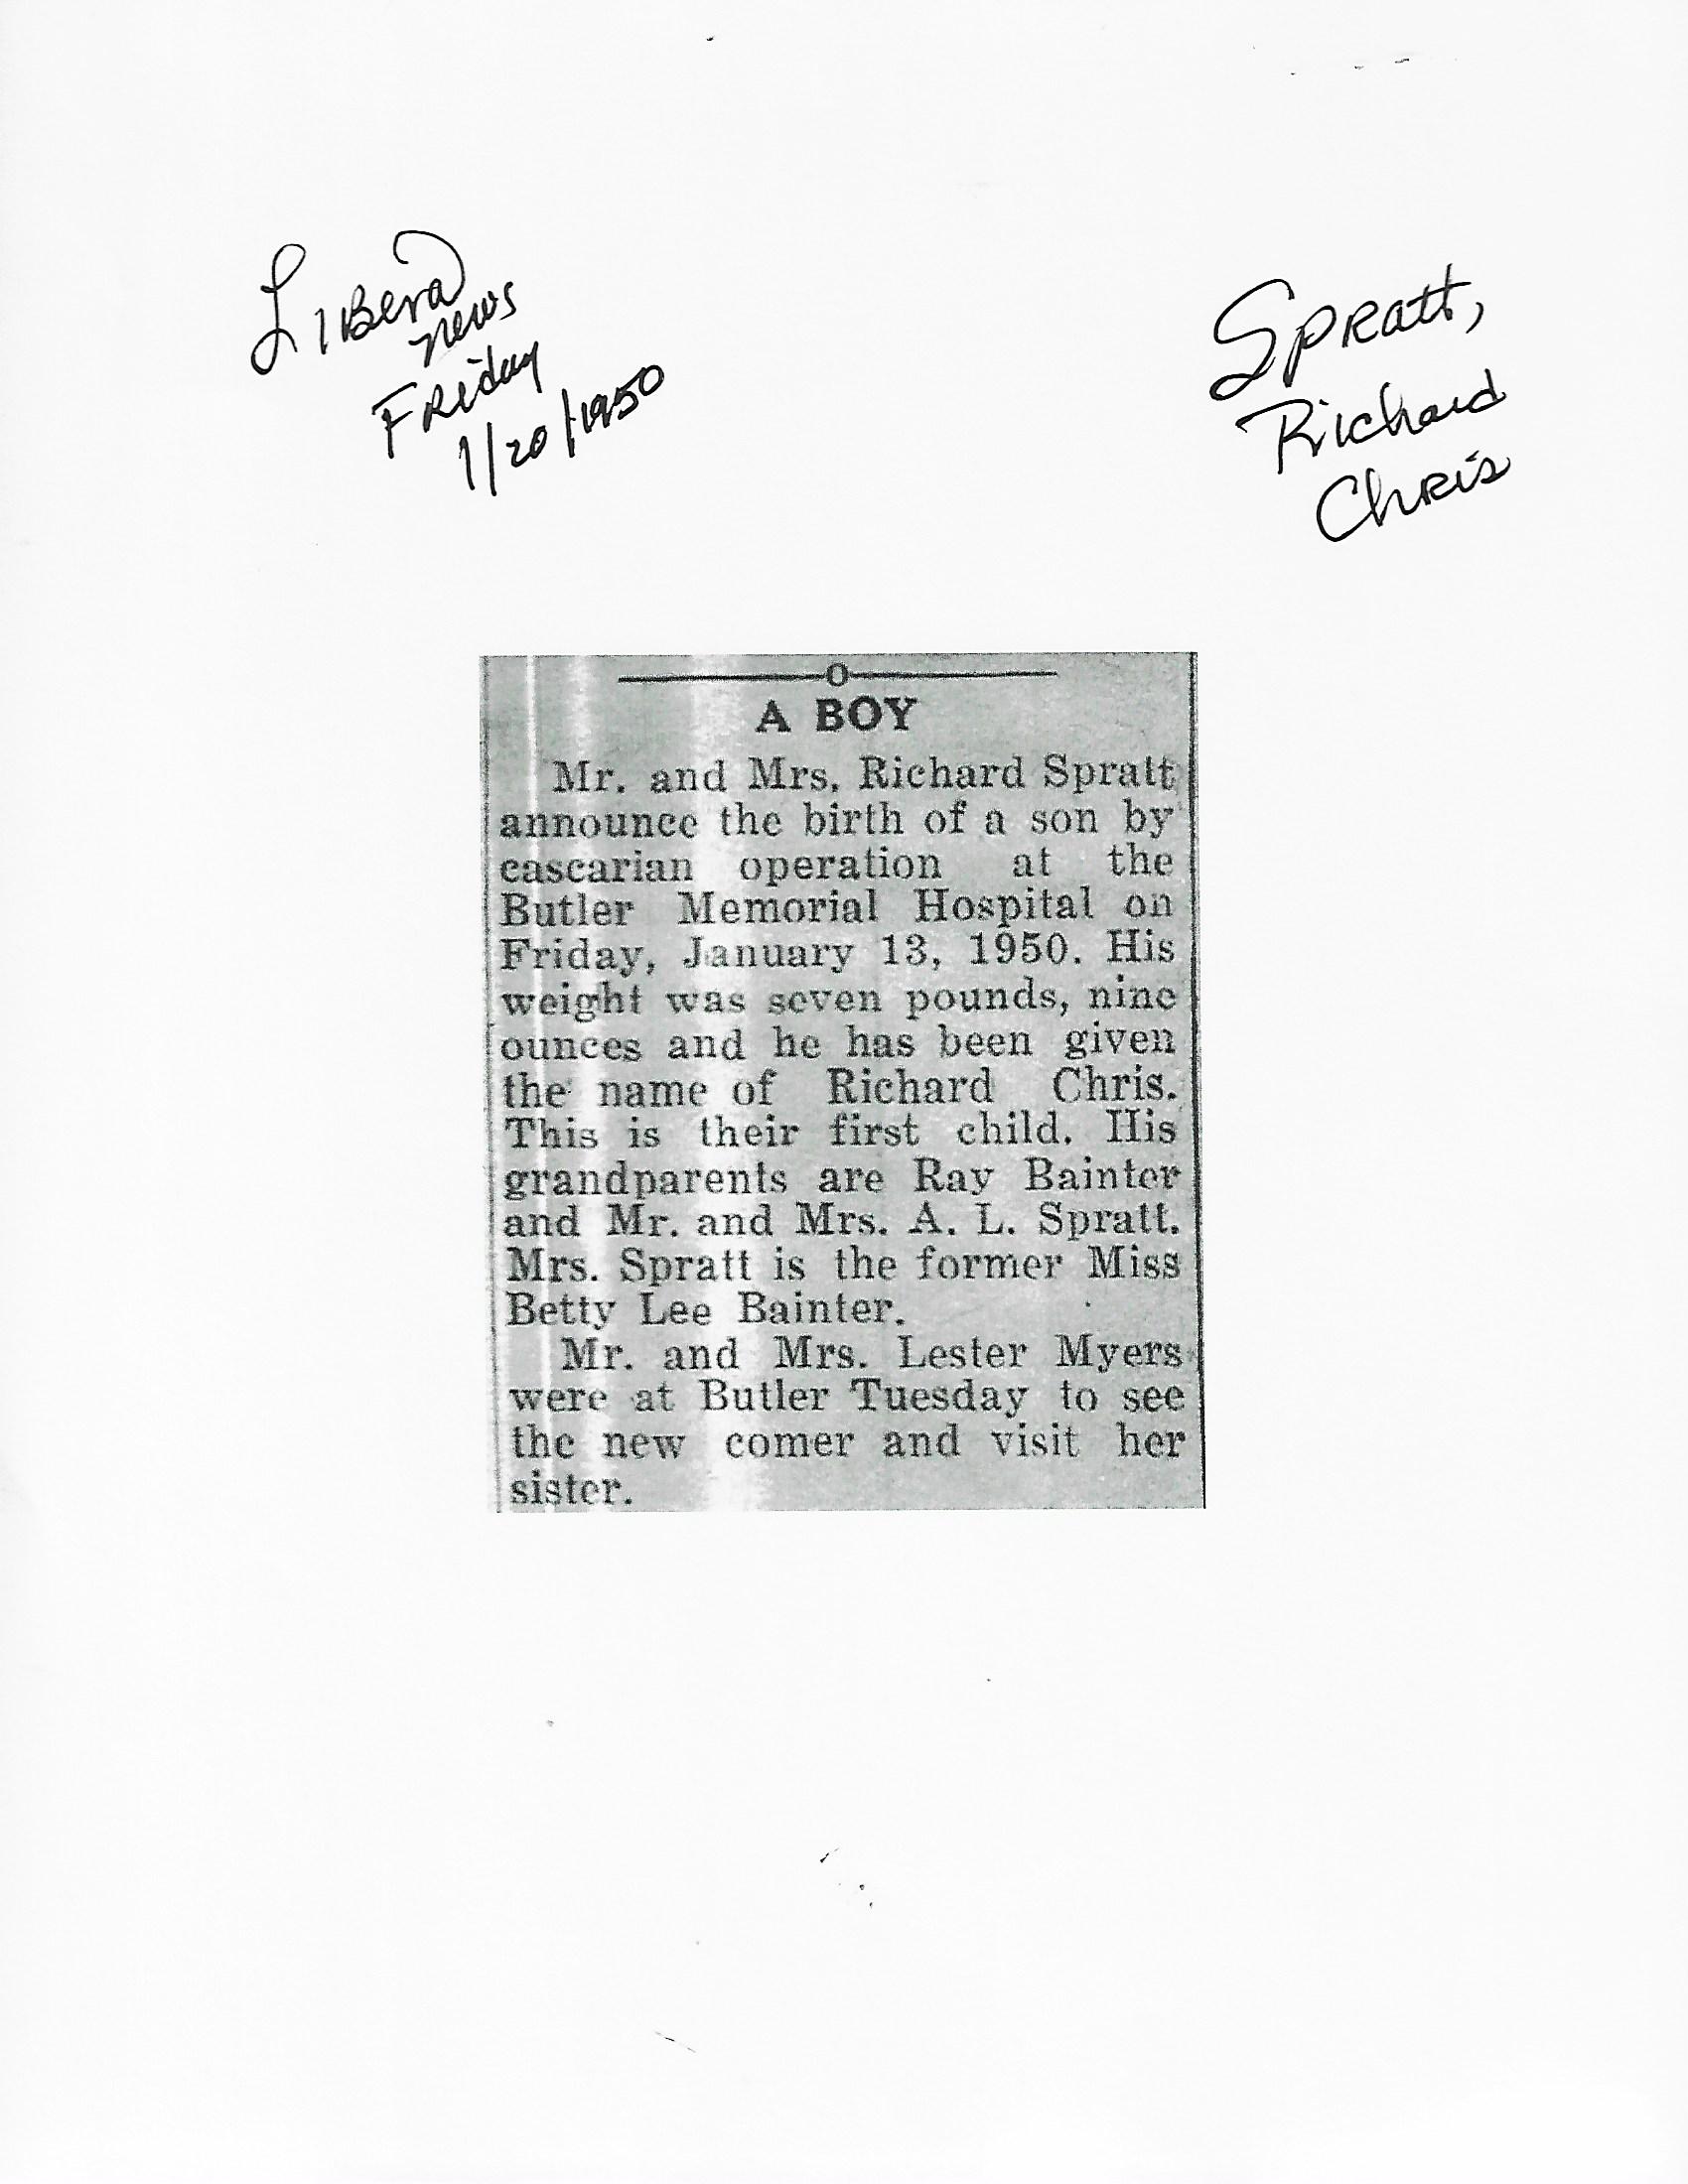 Liberal
news
Friday
1/20/1950
Spratt,
Richard
Chris
O
A BOY
Mr. and Mrs. Richard Spratt
announce the birth of a son by
cascarian operation at the
Butler Memorial Hospital on
Friday, January 13, 1950. His
weight was seven pounds, nine
ounces and he has been given
the name of Richard Chris.
This is their first child. His
grandparents are Ray Bainter
and Mr. and Mrs. A. L. Spratt.
Mrs. Spratt is the former Miss
Betty Lee Bainter.
Mr. and Mrs. Lester Myers
were at Butler Tuesday to see
the new comer and visit her
sister.